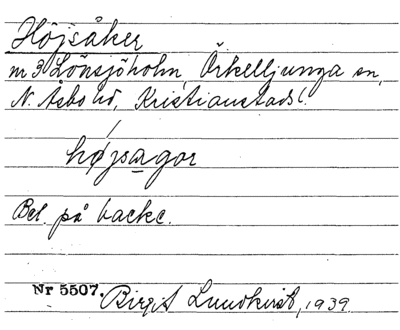 Höjsåker
nr 3 Lönsjöholm, Örkelljunga sn,
N. Åsbo hd, Kristianstads l.
hǿjsagor
Bel. på backe.
Nr 5507. Birgit Lundkvist, 1939